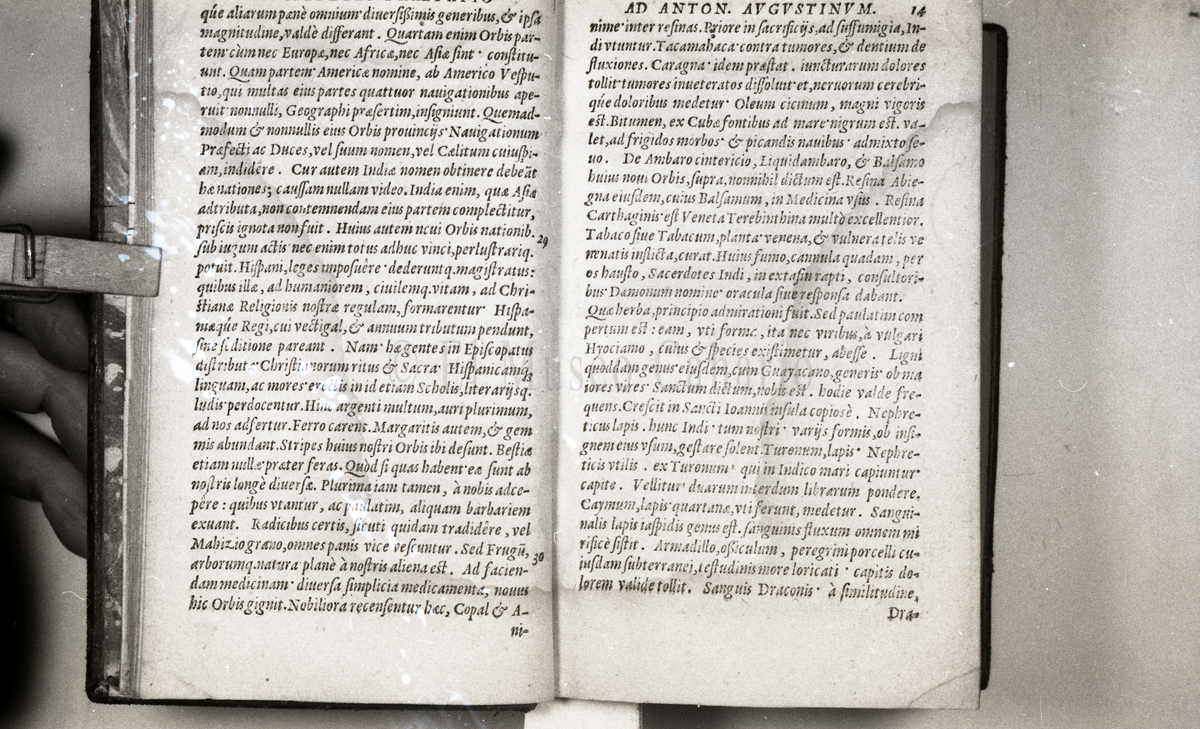 qúe aliarum panè omnium diuersißimis generibus, & ipsa
magnitudine, valdè differant. Quartam enim Orbis par-
tem cùm nec Europæ, nec Africæ, nec Asiæ sint constitu-
unt. Quam partem Americæ nomine, ab Americo Vespu-
tio, qui multas eius partes quattuor nauigationibus ape-
ruit nonnulli, Geographi præsertim, insigniunt. Quemad-
modum & nonnullis eius Orbis prouincijs Nauigationum
Præfecti ac Duces, vel suum nomen, vel Cælitum cuiuspi-
am, indidêre. Cur autem Indiæ nomen obtinere debeāt
hæ nationes; caussam nullam video. India enim, quæ Asiæ
adtributa, non contemnendam eius partem complectitur,
priscis ignota non fuit. Huius autem noui Orbis nationib.
sub iugum actis nec enim totus adhuc vinci, perlustrariq. 29
potuit. Hispani, leges imposuêre dederuntq. magistratus:
quibus illæ, ad humaniorem, ciuilemq. vitam, ad Chri-
stianæ Religionis nostræ regulam, formarentur Hispa-
niæqúe Regi, cui vectigal, & annuum tributum pendunt,
sine seditione pareant. Nam hæ gentes in Episcopatus
distributæ Christianorum ritus & Sacra Hispanicamq.
linguam, ac mores in id etiam Scholis, literarijsq.
ludis perdocentur. Hinc argenti multum, auri plurimum,
ad nos adfertur. Ferro carent. Margaritis autem, & gem
mis abundant. Stripes huius nostri Orbis ibi desunt. Bestiæ
etiam nullæ præter feras. Quòd si quas habent eæ sunt ab
nostris longè diuersæ. Plurima iam tamen, à nobis adce-
pêre: quibus vtantur, ac paulatim, aliquam barbariem
exuant. Radicibus certis, sicuti quidam tradidêre, vel
Mahizio grano, omnes panis vice vescuntur. Sed Frugū,
arborumq. natura planè à nostris aliena est. Ad facien- 30
dam medicinam diuersa simplicia medicamenta, nouus
hic Orbis gignit. Nobiliora recensentur hæc, Copal & A-
ni-
AD ANTON. AVGVSTINVM. 14
nime inter resinas. Priore in sacrificijs, ad suffumigia, In-
di vtuntur. Tacamahaca contra tumores, & dentium de
fluxiones. Caragna idem præstat. iuncturarum dolores
tollit tumores inueteratos dissoluit et, neruorum cerebri-
qúe doloribus medetur Oleum cicinum, magni vigoris
est. Bitumen, ex Cubæ fontibus ad mare nigrum est. va-
let, ad frigidos morbos & picandis nauibus admixto se-
uo. De Ambaro cinericio, Liquidambaro, & Balsamo
huius noui Orbis, supra, nonnihil dictum est. Resina Abie-
gna eiusdem, cuius Balsamum, in Medicina vsus. Resina
Carthaginis est Veneta Terebinthina multò excellentior.
Tabaco siue Tabacum, planta venena, & vulnera telis ve
nenatis inflicta, curat. Huius fumo, cannula quadam, per
os hausto, Sacerdotes Indi, in extasin rapti, consultori-
bus Dæmonum nomine oracula siue responsa dabant.
Quæ herba, principio admirationi fuit. Sed paulatim com
pertum est: eam, vti forma, ita nec viribus, à vulgari
Hyociamo, cuius & species existimetur, abesse. Ligni
quoddam genus eiusdem, cum Guayacano, generis ob ma
iores vires Sanctum dictum, nobis est. hodie valde fre-
quens. Crescit in Sancti Ioannis insula copiosè. Nephre-
ticus lapis. hunc Indi tum nostri varijs formis, ob insi-
gnem eius vsum, gestare solent. Turonum, lapis Nephre-
ticis vtilis. ex Turonum qui in Indico mari capiuntur
capite. Vellitur duarum interdum librarum pondere.
Caymum, lapis quartanæ, vti ferunt, medetur. Sangui-
nalis lapis iaspidis genus est. sanguinis fluxum omnem mi
rificè sistit. Armadillo, ossiculum, peregrini porcelli cu-
iusdam subterranei, testudinis more loricati capitis do-
lorem valide tollit. Sanguis Draconis à similitudine,
Dra-